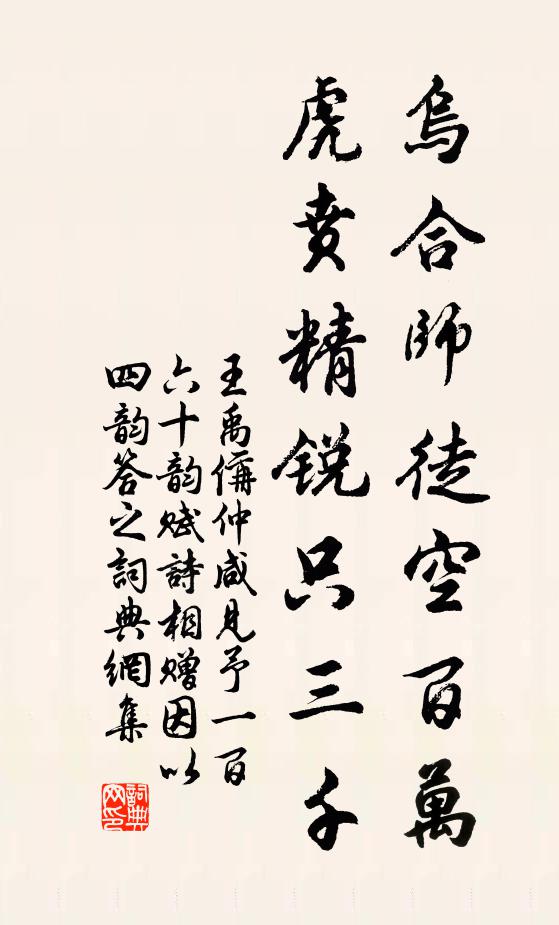 烏合師徒空百萬
虎賁精銳只三千
王禹偁仲咸見予一百
六十韵赋詩相赠因以
四韵答之詞典網集
詞典
网印